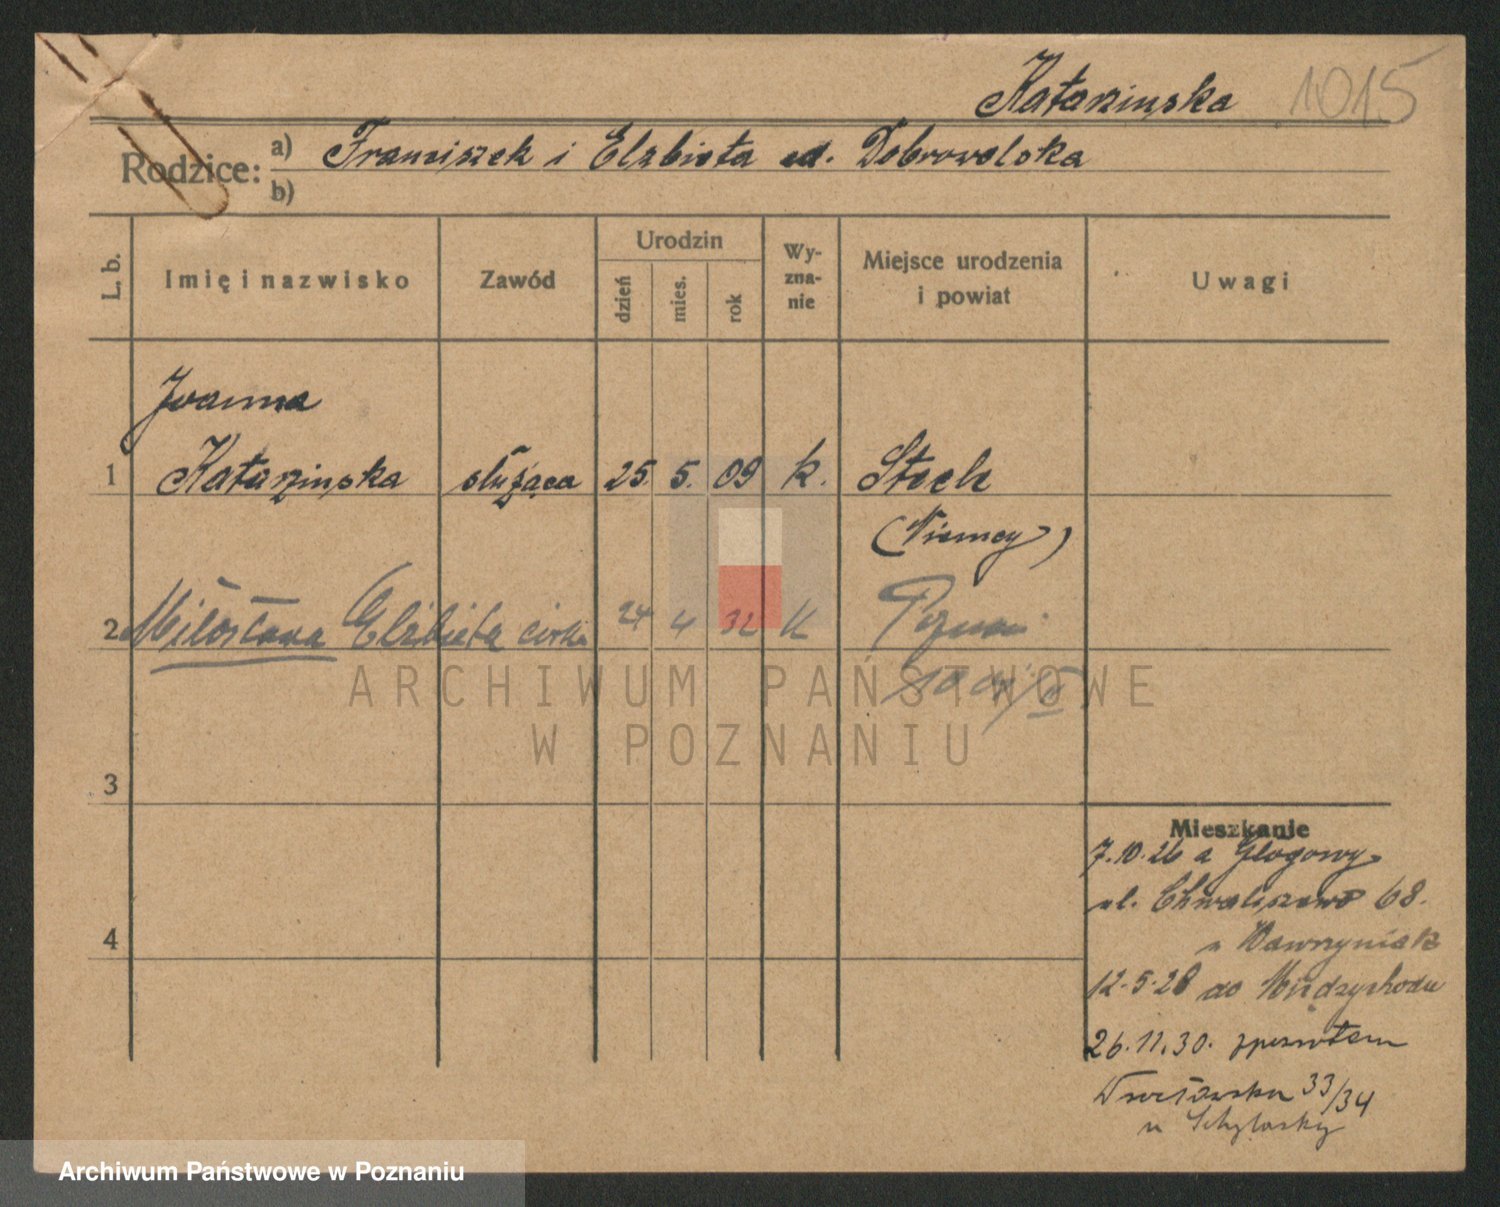 Katarzinska 1015
Rodzice: a) Franciszek i Elzbieta Dobrowolska
b)
L. b.
Imię i nazwisko
Zawód
Urodzin
dzień
mies.
rok
Wy-
zna-
nie
Miejsce urodzenia
i powiat
Uwagi
Joanna
1 Katarzinska służąca 25. 5. 09 k. Stech
(Niemcy)
2 Miłosława Elżbieta córka 24 4 32 k Poznań
ARCHIWUM PAŃSTWOWE
W POZNANIU
3
4
Mieszkanie
7.10.26 z Głogowy
ul. Chwaliszewo 68.
u Wawrzyniak
12.5.28 do Międzychodu
26.11.30. z powrotem
Wrocławska 33/34
u
Archiwum Państwowe w Poznaniu